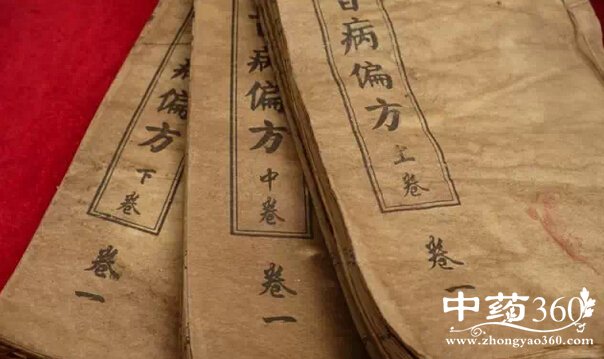 病偏方
上卷
卷一
病偏方
中卷
卷一
病偏方
下卷
卷一
中药360
www.zhongyao360.com